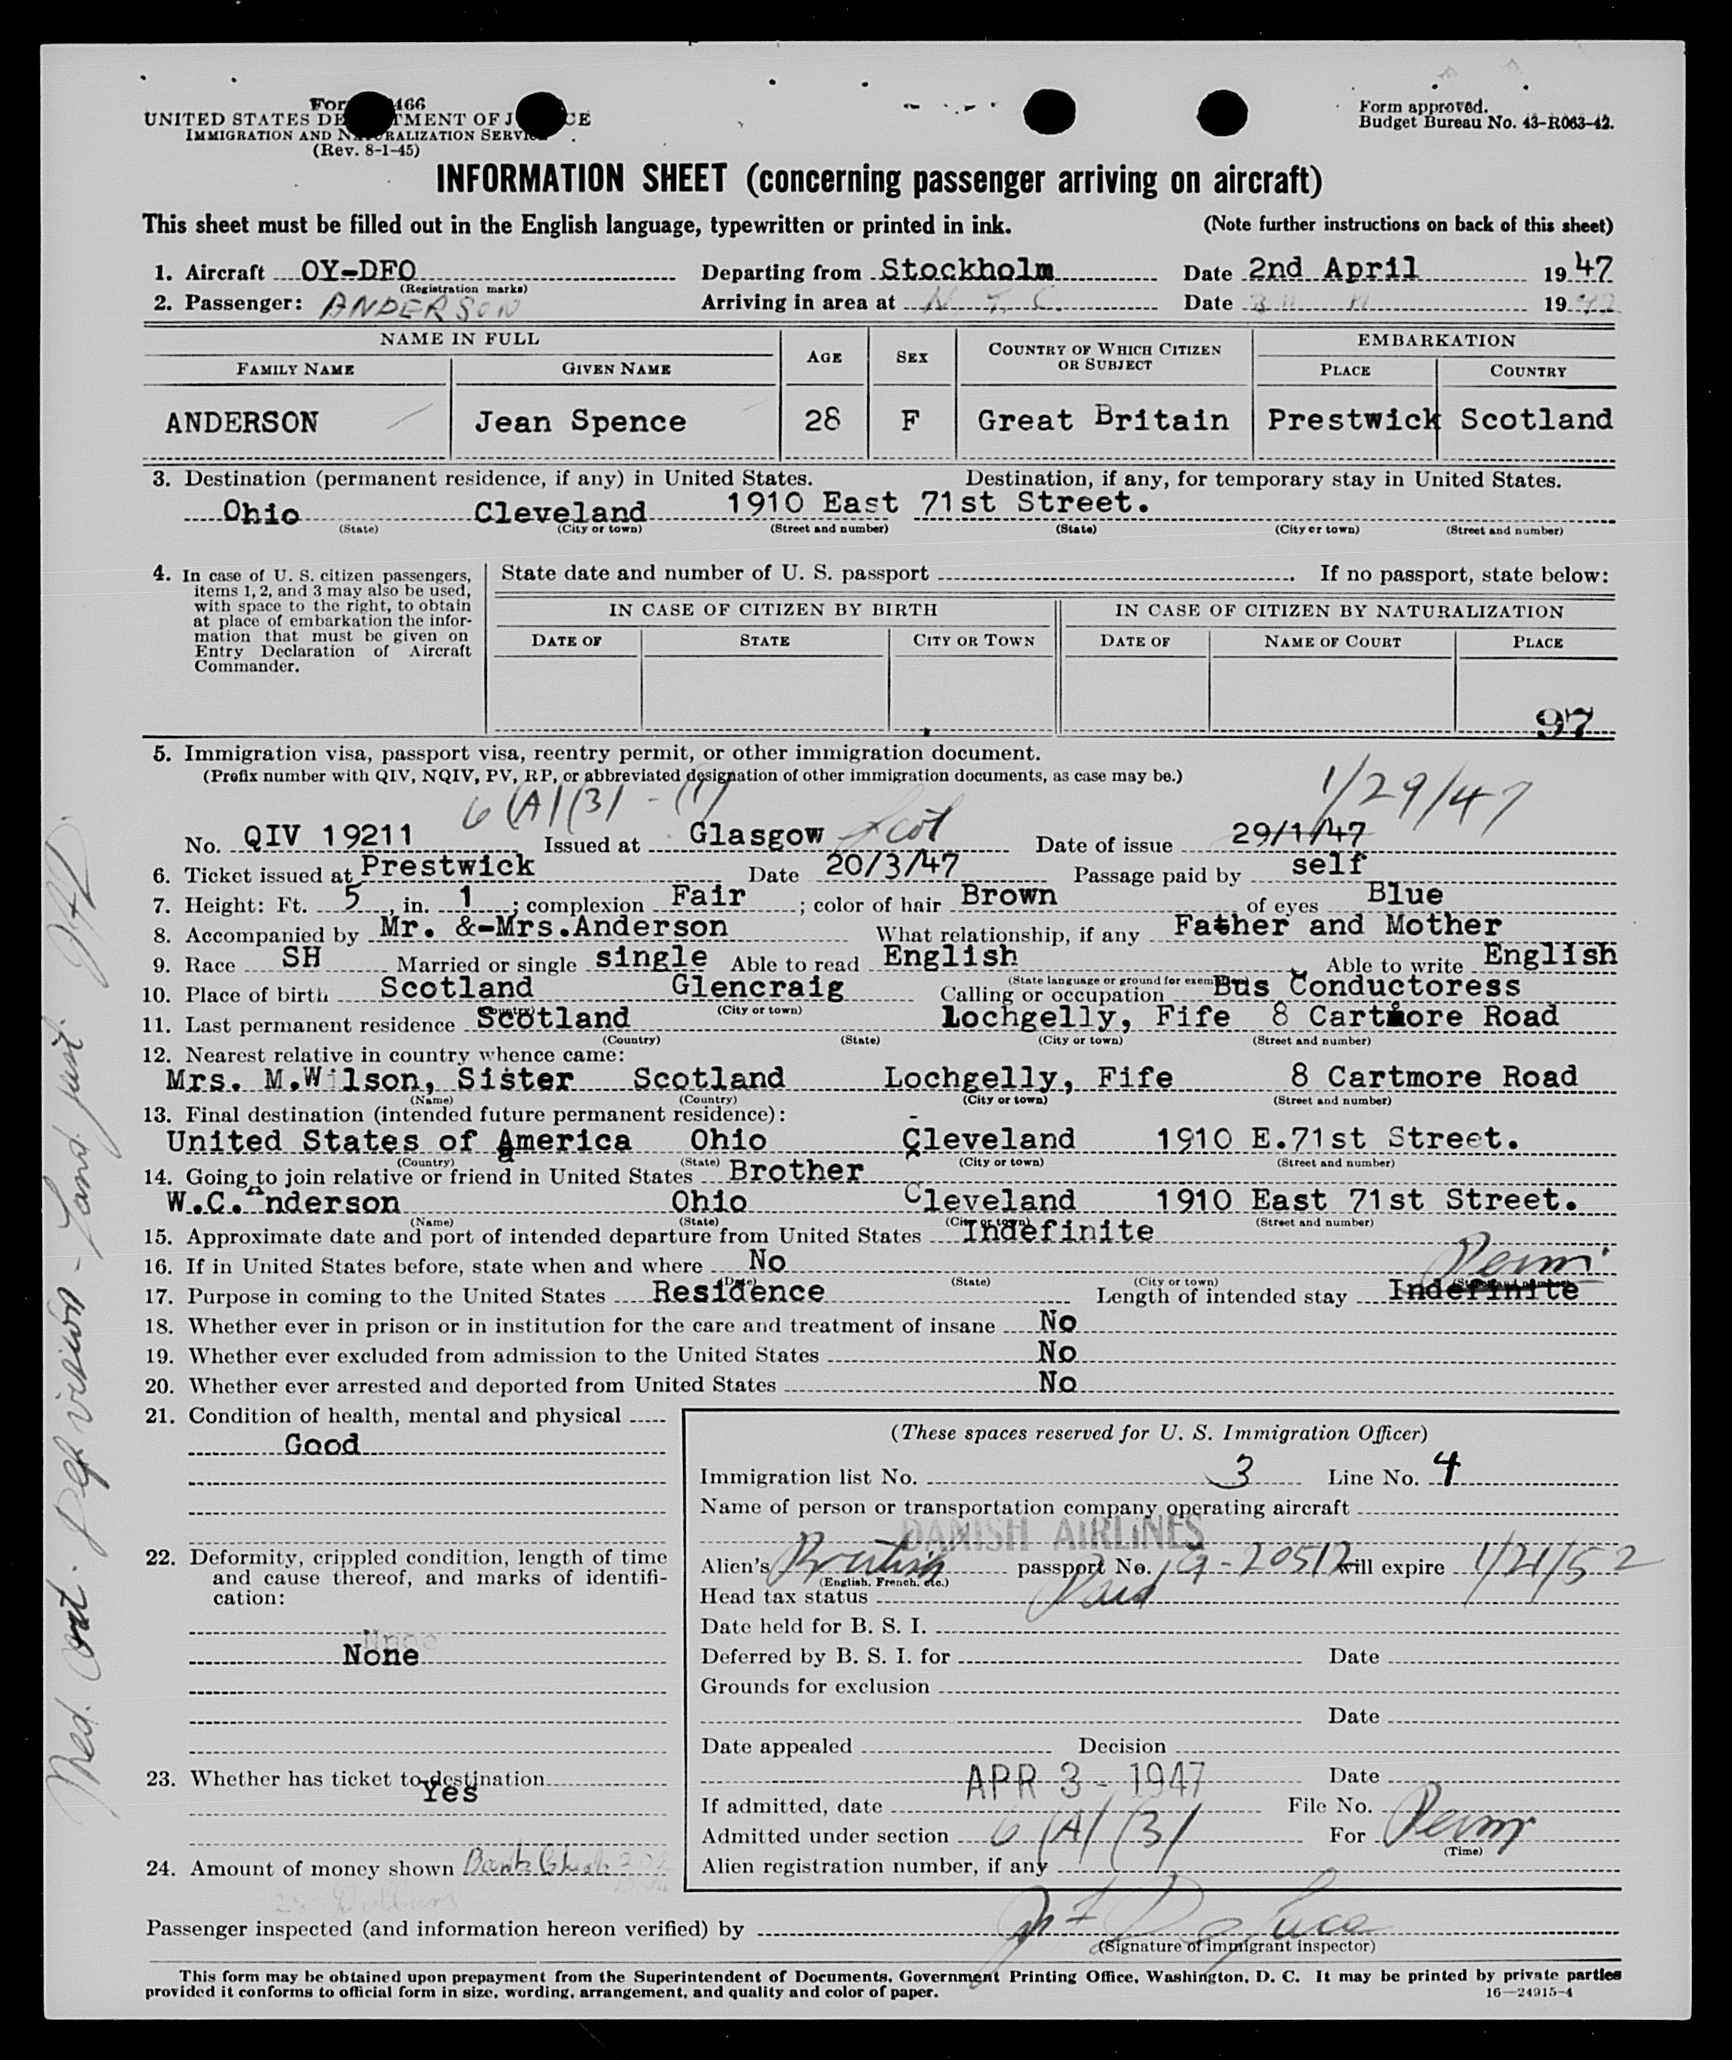 Form 466
UNITED STATES DEPARTMENT OF JUSTICE
IMMIGRATION AND NATURALIZATION SERVICE
(Rev. 8-1-45)
Form approved.
Budget Bureau No. 43-R063-42.
INFORMATION SHEET (concerning passenger arriving on aircraft)
This sheet must be filled out in the English language, typewritten or printed in ink. (Note further instructions on back of this sheet)
1. Aircraft OY-DFO Departing from Stockholm Date 2nd April 1947
(Registration marks)
2. Passenger: ANDERSON Arriving in area at N.Y.C. Date 19
NAME IN FULL AGE SEX COUNTRY OF WHICH CITIZEN OR SUBJECT EMBARKATION
FAMILY NAME GIVEN NAME PLACE COUNTRY
ANDERSON Jean Spence 28 F Great Britain Prestwick Scotland
3. Destination (permanent residence, if any) in United States. Destination, if any, for temporary stay in United States.
Ohio Cleveland 1910 East 71st Street.
(State) (City or town) (Street and number) (State) (City or town) (Street and number)
4. In case of U. S. citizen passengers,
items 1, 2, and 3 may also be used,
with space to the right, to obtain
at place of embarkation the infor-
mation that must be given on
Entry Declaration of Aircraft
Commander.
State date and number of U. S. passport . If no passport, state below:
IN CASE OF CITIZEN BY BIRTH IN CASE OF CITIZEN BY NATURALIZATION
DATE OF STATE CITY OR TOWN DATE OF NAME OF COURT PLACE
97
5. Immigration visa, passport visa, reentry permit, or other immigration document.
(Prefix number with QIV, NQIV, PV, RP, or abbreviated designation of other immigration documents, as case may be.)
6 (A) (3) - (1) 1/29/47
No. QIV 19211 Issued at Glasgow Scot Date of issue 29/1/47
6. Ticket issued at Prestwick Date 20/3/47 Passage paid by self
7. Height: Ft. 5, in. 1; complexion Fair; color of hair Brown of eyes Blue
8. Accompanied by Mr. &-Mrs.Anderson What relationship, if any Father and Mother
9. Race SH Married or single single Able to read English Able to write English
(State language or ground for exemption)
10. Place of birth Scotland Glencraig Calling or occupation Bus Conductoress
(Country) (City or town)
11. Last permanent residence Scotland Lochgelly, Fife 8 Cartmore Road
(Country) (State) (City or town) (Street and number)
12. Nearest relative in country whence came:
Mrs. M.Wilson, Sister Scotland Lochgelly, Fife 8 Cartmore Road
(Name) (Country) (City or town) (Street and number)
13. Final destination (intended future permanent residence):
United States of America Ohio Cleveland 1910 E.71st Street.
(Country) (State) (City or town) (Street and number)
14. Going to join relative or friend in United States Brother
W.C.Anderson Ohio Cleveland 1910 East 71st Street.
(Name) (State) (City or town) (Street and number)
15. Approximate date and port of intended departure from United States Indefinite
16. If in United States before, state when and where No
(Date) (State) (City or town) (Street and number)
Perm.
17. Purpose in coming to the United States Residence Length of intended stay Indefinite
18. Whether ever in prison or in institution for the care and treatment of insane No
19. Whether ever excluded from admission to the United States No
20. Whether ever arrested and deported from United States No
21. Condition of health, mental and physical
Good
22. Deformity, crippled condition, length of time
and cause thereof, and marks of identifi-
cation:
None
23. Whether has ticket to destination
Yes
24. Amount of money shown
(These spaces reserved for U. S. Immigration Officer)
Immigration list No. 3 Line No. 4
Name of person or transportation company operating aircraft
DANISH AIRLINES
Alien's British passport No. will expire 1/21/52
(English, French, etc.)
Head tax status Paid
Date held for B. S. I.
Deferred by B. S. I. for Date
Grounds for exclusion
Date
Date appealed Decision
APR 3 - 1947 Date
If admitted, date File No.
Admitted under section 6 (A) (3) For Perm
(Time)
Alien registration number, if any
Passenger inspected (and information hereon verified) by
(Signature of immigrant inspector)
This form may be obtained upon prepayment from the Superintendent of Documents, Government Printing Office, Washington, D. C. It may be printed by private parties
provided it conforms to official form in size, wording, arrangement, and quality and color of paper. 16—24915-4
Med. Cert. Def. vision -